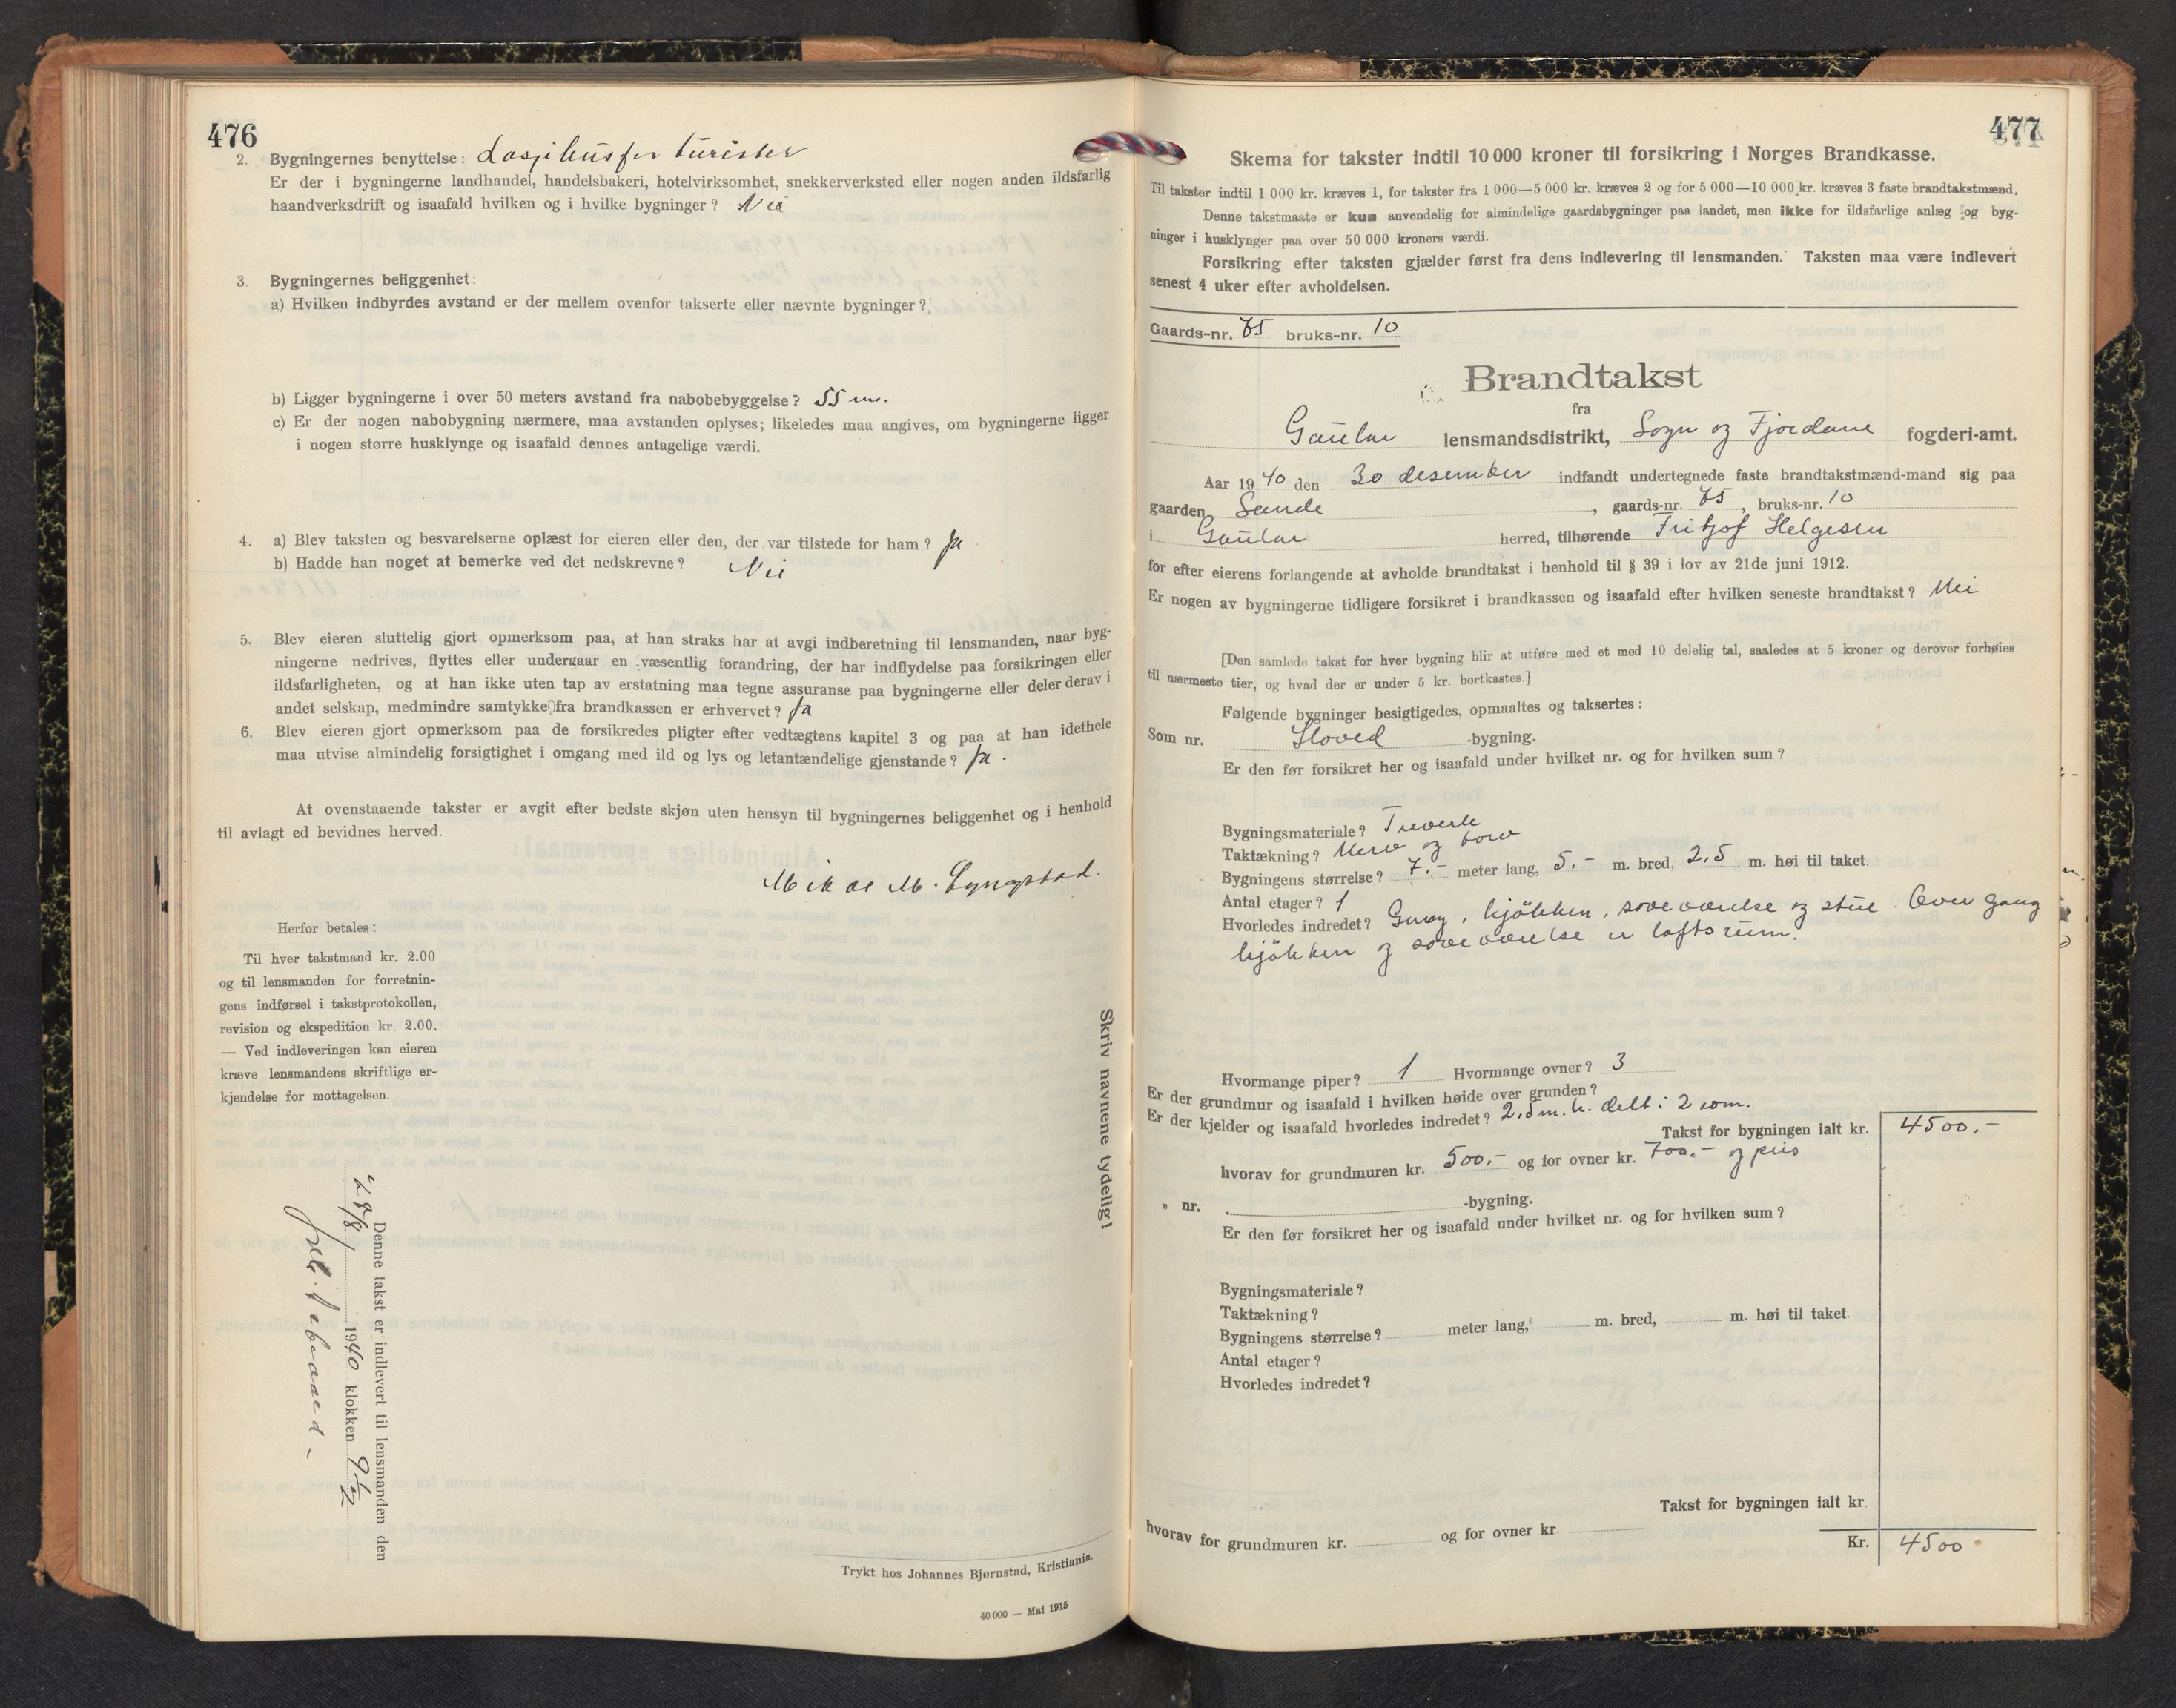 476
2. Bygningernes benyttelse: Losjihus for turister
Er der i bygningerne landhandel, handelsbakeri, hotelvirksomhet, snekkerverksted eller nogen anden ildsfarlig
haandverksdrift og isaafald hvilken og i hvilke bygninger? Nei
3. Bygningernes beliggenhet:
a) Hvilken indbyrdes avstand er der mellem ovenfor takserte eller nævnte bygninger?
b) Ligger bygningerne i over 50 meters avstand fra nabobebyggelse? 55 m.
c) Er der nogen nabobygning nærmere, maa avstanden oplyses; likeledes maa angives, om bygningerne ligger
i nogen større husklynge og isaafald dennes antagelige værdi.
4. a) Blev taksten og besvarelserne oplæst for eieren eller den, der var tilstede for ham? Ja
b) Hadde han noget at bemerke ved det nedskrevne? Nei
5. Blev eieren sluttelig gjort opmerksom paa, at han straks har at avgi indberetning til lensmanden, naar byg-
ningerne nedrives, flyttes eller undergaar en væsentlig forandring, der har indflydelse paa forsikringen eller
ildsfarligheten, og at han ikke uten tap av erstatning maa tegne assuranse paa bygningerne eller deler derav i
andet selskap, medmindre samtykke fra brandkassen er erhvervet? Ja
6. Blev eieren gjort opmerksom paa de forsikredes pligter efter vedtægtens kapitel 3 og paa at han idethele
maa utvise almindelig forsigtighet i omgang med ild og lys og letantændelige gjenstande? Ja.
At ovenstaaende takster er avgit efter bedste skjøn uten hensyn til bygningernes beliggenhet og i henhold
til avlagt ed bevidnes herved.
M. Lyngstad.
Herfor betales:
Til hver takstmand kr. 2.00
og til lensmanden for forretnin-
gens indførsel i takstprotokollen,
revision og ekspedition kr. 2.00.
— Ved indleveringen kan eieren
kræve lensmandens skriftlige er-
kjendelse for mottagelsen.
Denne takst er indlevert til lensmanden den
28/8 1940 klokken 9 1/2
Skriv navnene tydelig!
Trykt hos Johannes Bjørnstad, Kristiania.
40 000 — Mai 1915
477
Skema for takster indtil 10 000 kroner til forsikring i Norges Brandkasse.
Til takster indtil 1 000 kr. kræves 1, for takster fra 1 000—5 000 kr. kræves 2 og for 5 000—10 000 kr. kræves 3 faste brandtakstmænd.
Denne takstmaate er kun anvendelig for almindelige gaardsbygninger paa landet, men ikke for ildsfarlige anlæg og byg-
ninger i husklynger paa over 50 000 kroners værdi.
Forsikring efter taksten gjælder først fra dens indlevering til lensmanden. Taksten maa være indlevert
senest 4 uker efter avholdelsen.
Gaards-nr. 75 bruks-nr. 10
Brandtakst
fra
Gaular lensmandsdistrikt, Sogn og Fjordane fogderi-amt.
Aar 1940 den 30 desember indfandt undertegnede faste brandtakstmænd-mand sig paa
gaarden Sande, gaards-nr. 75, bruks-nr. 10
i Gaular herred, tilhørende Fritjof Helgesen
for efter eierens forlangende at avholde brandtakst i henhold til § 39 i lov av 21de juni 1912.
Er nogen av bygningerne tidligere forsikret i brandkassen og isaafald efter hvilken seneste brandtakst? Nei
[Den samlede takst for hver bygning blir at utføre med et med 10 delelig tal, saaledes at 5 kroner og derover forhøies
til nærmeste tier, og hvad der er under 5 kr. bortkastes.]
Følgende bygninger besigtigedes, opmaaltes og taksertes:
Som nr. Hoved -bygning.
Er den før forsikret her og isaafald under hvilket nr. og for hvilken sum?
Bygningsmateriale? Treverk
Taktækning? Never og torv
Bygningens størrelse? 7.- meter lang, 5.- m. bred, 2,5 m. høi til taket.
Antal etager? 1
Hvorledes indredet? Gang, kjökken, soveværelse og stue. Over gang
kjökken og soveværelse er loftsrum.
Hvormange piper? 1 Hvormange ovner? 3
Er der grundmur og isaafald i hvilken høide over grunden?
Er der kjelder og isaafald hvorledes indredet? 2,5 m. h. delt i 2 rom.
Takst for bygningen ialt kr. 4500.-
hvorav for grundmuren kr. 500.- og for ovner kr. 700.- og peis
„ nr. -bygning.
Er den før forsikret her og isaafald under hvilket nr. og for hvilken sum?
Bygningsmateriale?
Taktækning?
Bygningens størrelse? meter lang, m. bred, m. høi til taket.
Antal etager?
Hvorledes indredet?
Takst for bygningen ialt kr.
hvorav for grundmuren kr. og for ovner kr.
Kr. 4500